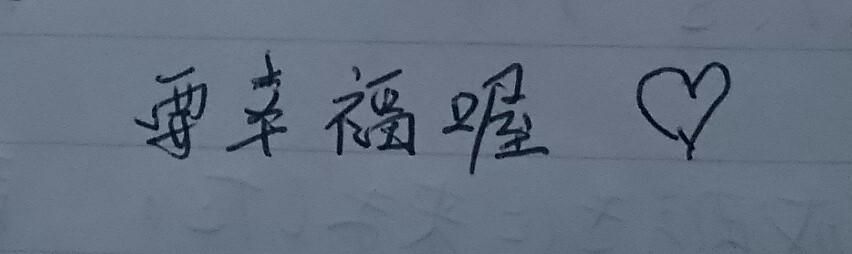 要幸福喔 ♡